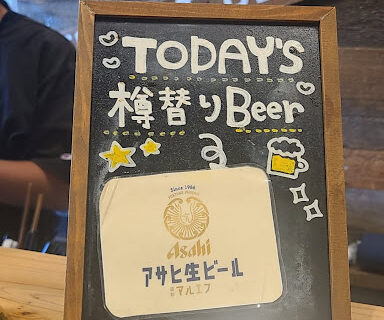 TODAY'S
樽替りBeer
Since 1986
Asahi
アサヒ生ビール
通称 マルエフ